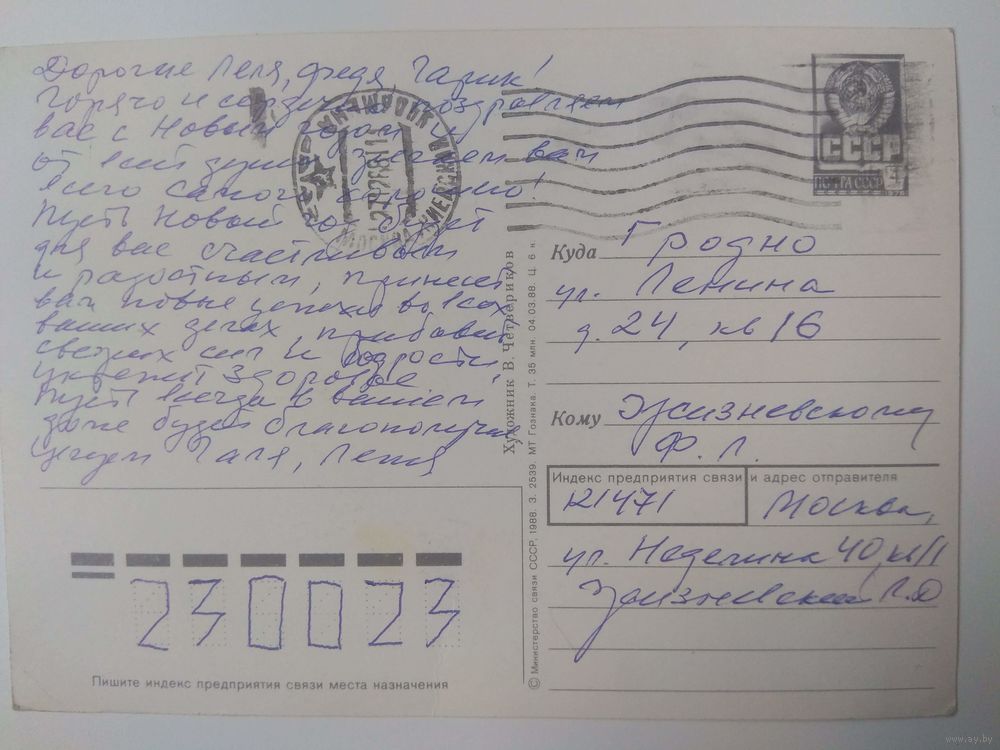 Дорогие Леля, Федя, Гарик!
Горячо и сердечно поздравляем
вас с Новым годом и
от всей души желаем вам
всего самого хорошего!
Пусть Новый год будет
для вас счастливым
и радостным, принесет
вам новые успехи во всех
ваших делах, прибавит
свежих сил и бодрости,
укрепит здоровье.
Пусть всегда в вашем
доме будет благополучие
Целуем Галя, Леня
СССР
ПОЧТА СССР
МОСКВА
Куда Гродно
ул. Ленина
д. 24, кв 16
Кому Жизневскому
Ф. Л.
Индекс предприятия связи и адрес отправителя
121471 Москва,
ул. Неделина 40, кв 11
Жизневский Л.Ф
230023
Пишите индекс предприятия связи места назначения
Художник В. Четвериков
© Министерство связи СССР, 1988. З. 2539. МТ Гознака. Т. 35 млн. 04.03.88. Ц. 6 к
www.ay.by